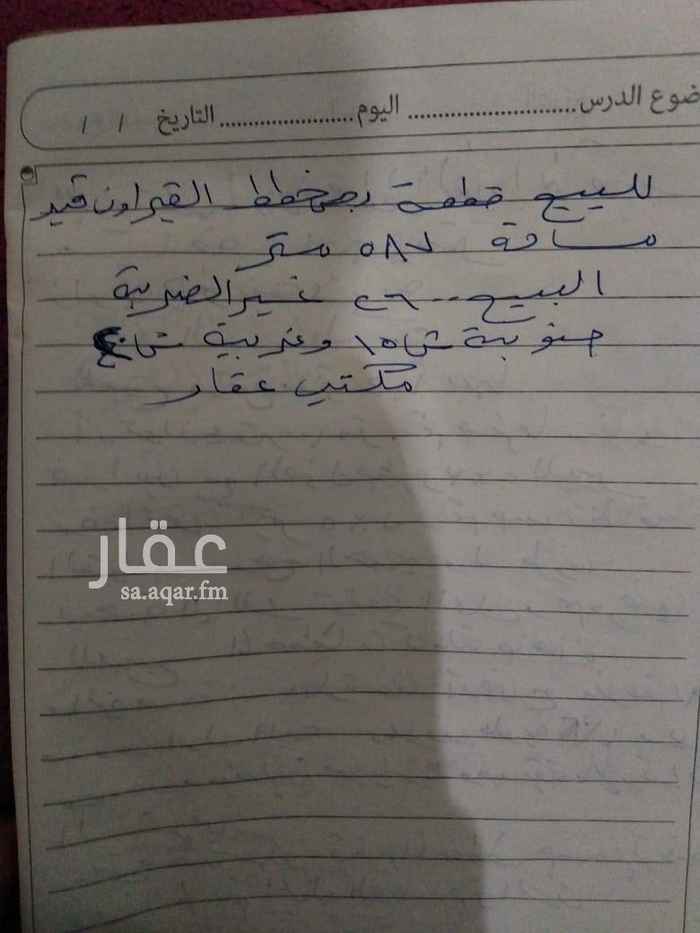 ضوع الدرس ........................ اليوم ..................... التاريخ / /
للبيع قطعة بمخطط القيراون فيو
مساحة ٥٨٧ متر
البيع ٢٦٠٠ غير الضريبة
جنوبية ش١٥ وغربية ش
مكتب عقار
عقار
sa.aqar.fm